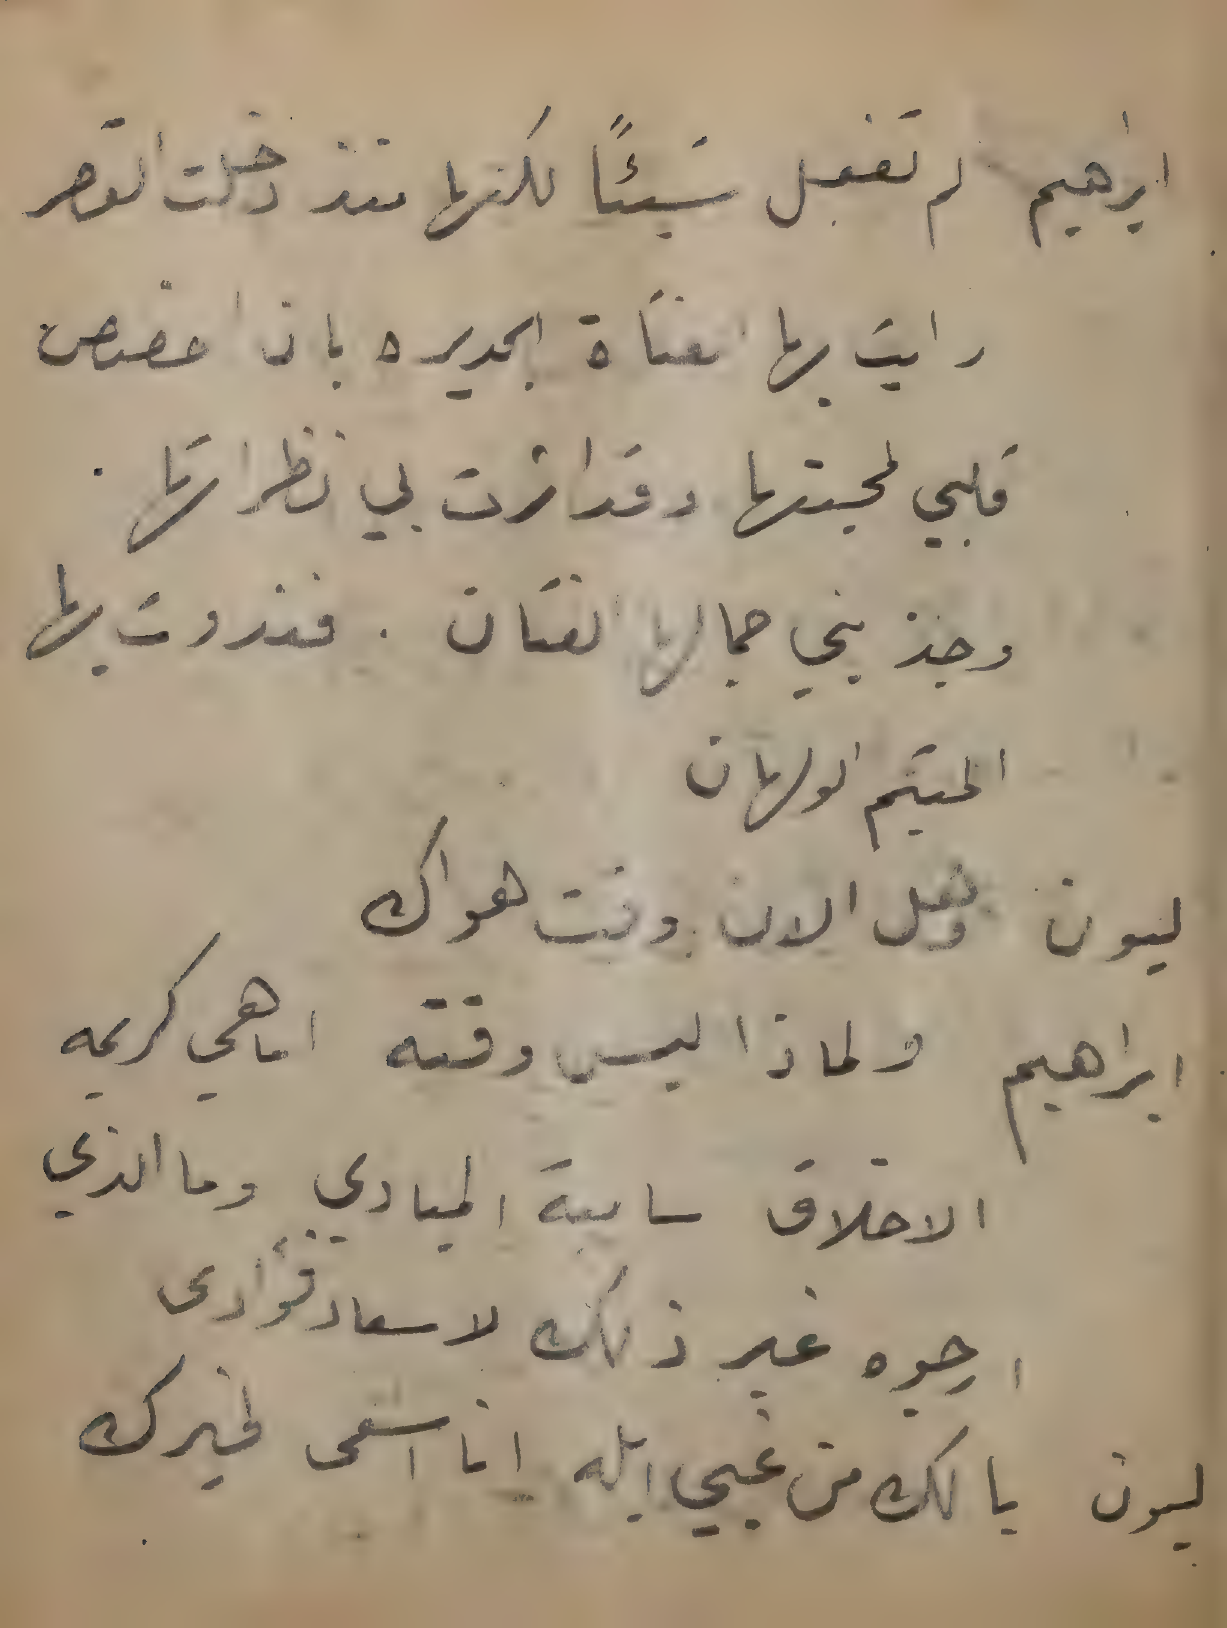 ابراهيم لم تفعل شيئاً لكنها منذ دخلت القصر
رايت بها الفتاة الجديره بان اخصص
قلبي لمحبتها وقد اثرت بي نظراتها .
وجذبني جمالها الفتان . فغدوت بها
المتيم الولهان
ليون وهل الان وقت هواك
ابراهيم ولماذا ليس وقته اما هي كريمه
الاخلاق سامية المبادي وما الذي
ارجوه غير ذلك لاسعاد فؤادي
ليون يا لك من غبي ابله انا اسعى لخيرك